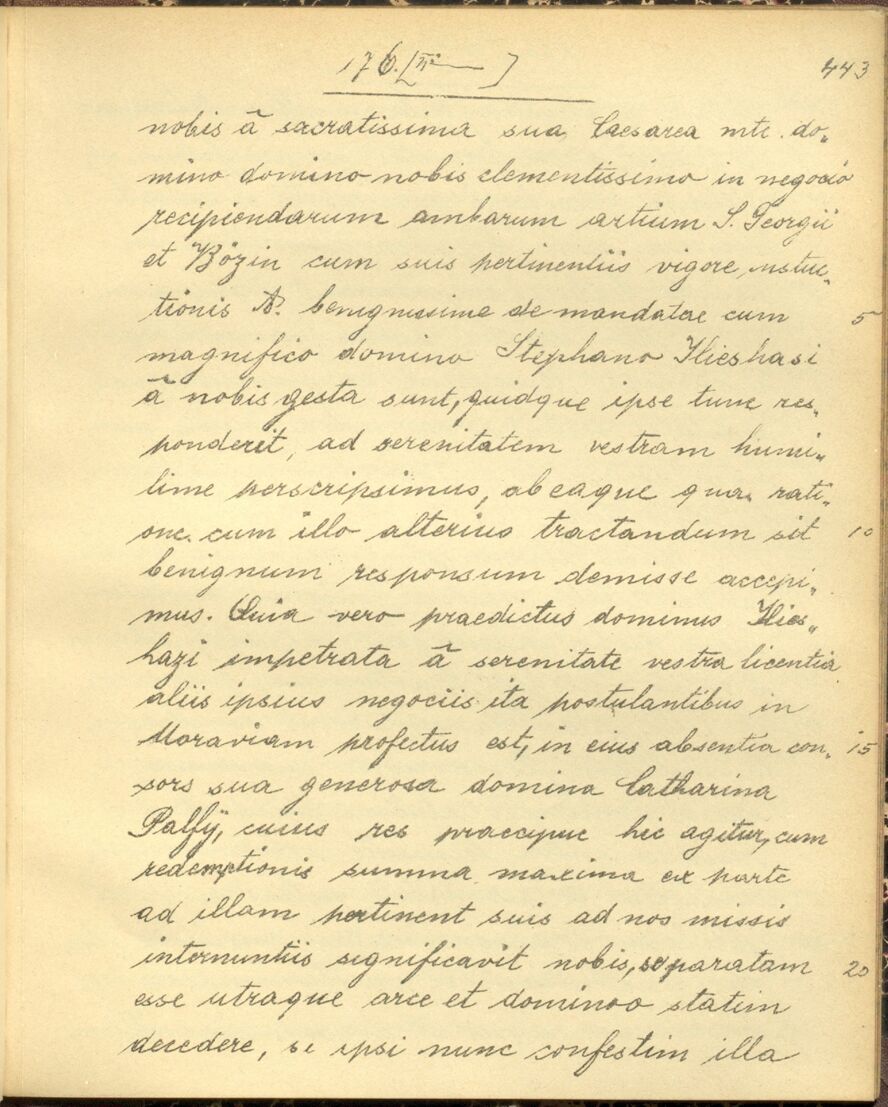 176. [II° — ]
443
nobis ā sacratissima sua Caesarea mte. do„
mino domino nobis clementissimo in negocio
recipiendarum ambarum artium S. Georgii
et Bözin cum suis pertinentiis vigore instuc„
tionis A. benignissime demandatae cum 5
magnifico domino Stephano Ilieshasi
ā nobis gesta sunt, quidque ipse tunc res„
ponderit, ad serenitatem vestram humi„
lime perscripsimus, ab eaque qua rati„
one cum illo alterius tractandum sit 10
benignum responsum demisse accepi„
mus. Quia vero praedictus dominus Ilies„
hazi impetrata ā serenitate vestra licentia
aliis ipsius negociis ita postulantibus in
Moraviam profectus est, in eius absentia con„ 15
sors sua generosa domina Catharina
Palfÿ, cuius res praecipue hic agitur, cum
redemptionis summa maxima ex parte
ad illam pertinent suis ad nos missis
internuntiis significavit nobis, separatam 20
esse utraque arce et dominoo statim
decedere, si ipsi nunc confestim illa